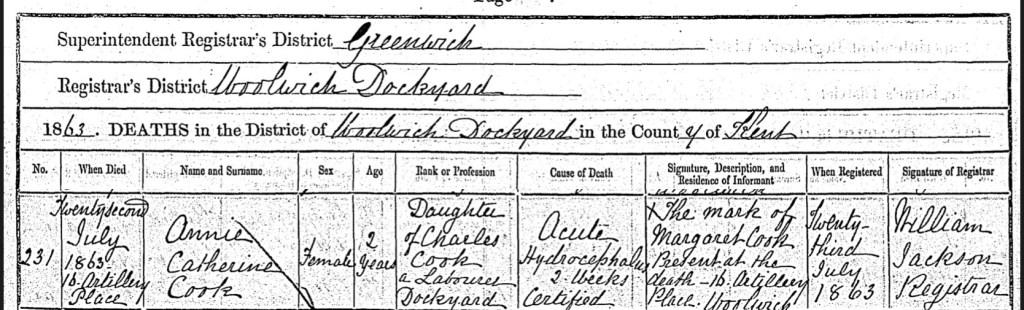 Superintendent Registrar's District Greenwich
Registrar's District Woolwich Dockyard
1863. DEATHS in the District of Woolwich Dockyard in the County of Kent
No. When Died Name and Surname Sex Age Rank or Profession Cause of Death Signature, Description, and Residence of Informant When Registered Signature of Registrar
231
Twenty second
July
1863
16 Artillery
Place
Annie
Catherine
Cook
Female
2
Years
Daughter
of Charles
Cook
a Labourer
Dockyard
Acute
Hydrocephalus
2 Weeks
Certified
X The mark of
Margaret Cook
Present at the
death - 16 Artillery
Place Woolwich
Twenty-
third
July
1863
William
Jackson
Registrar